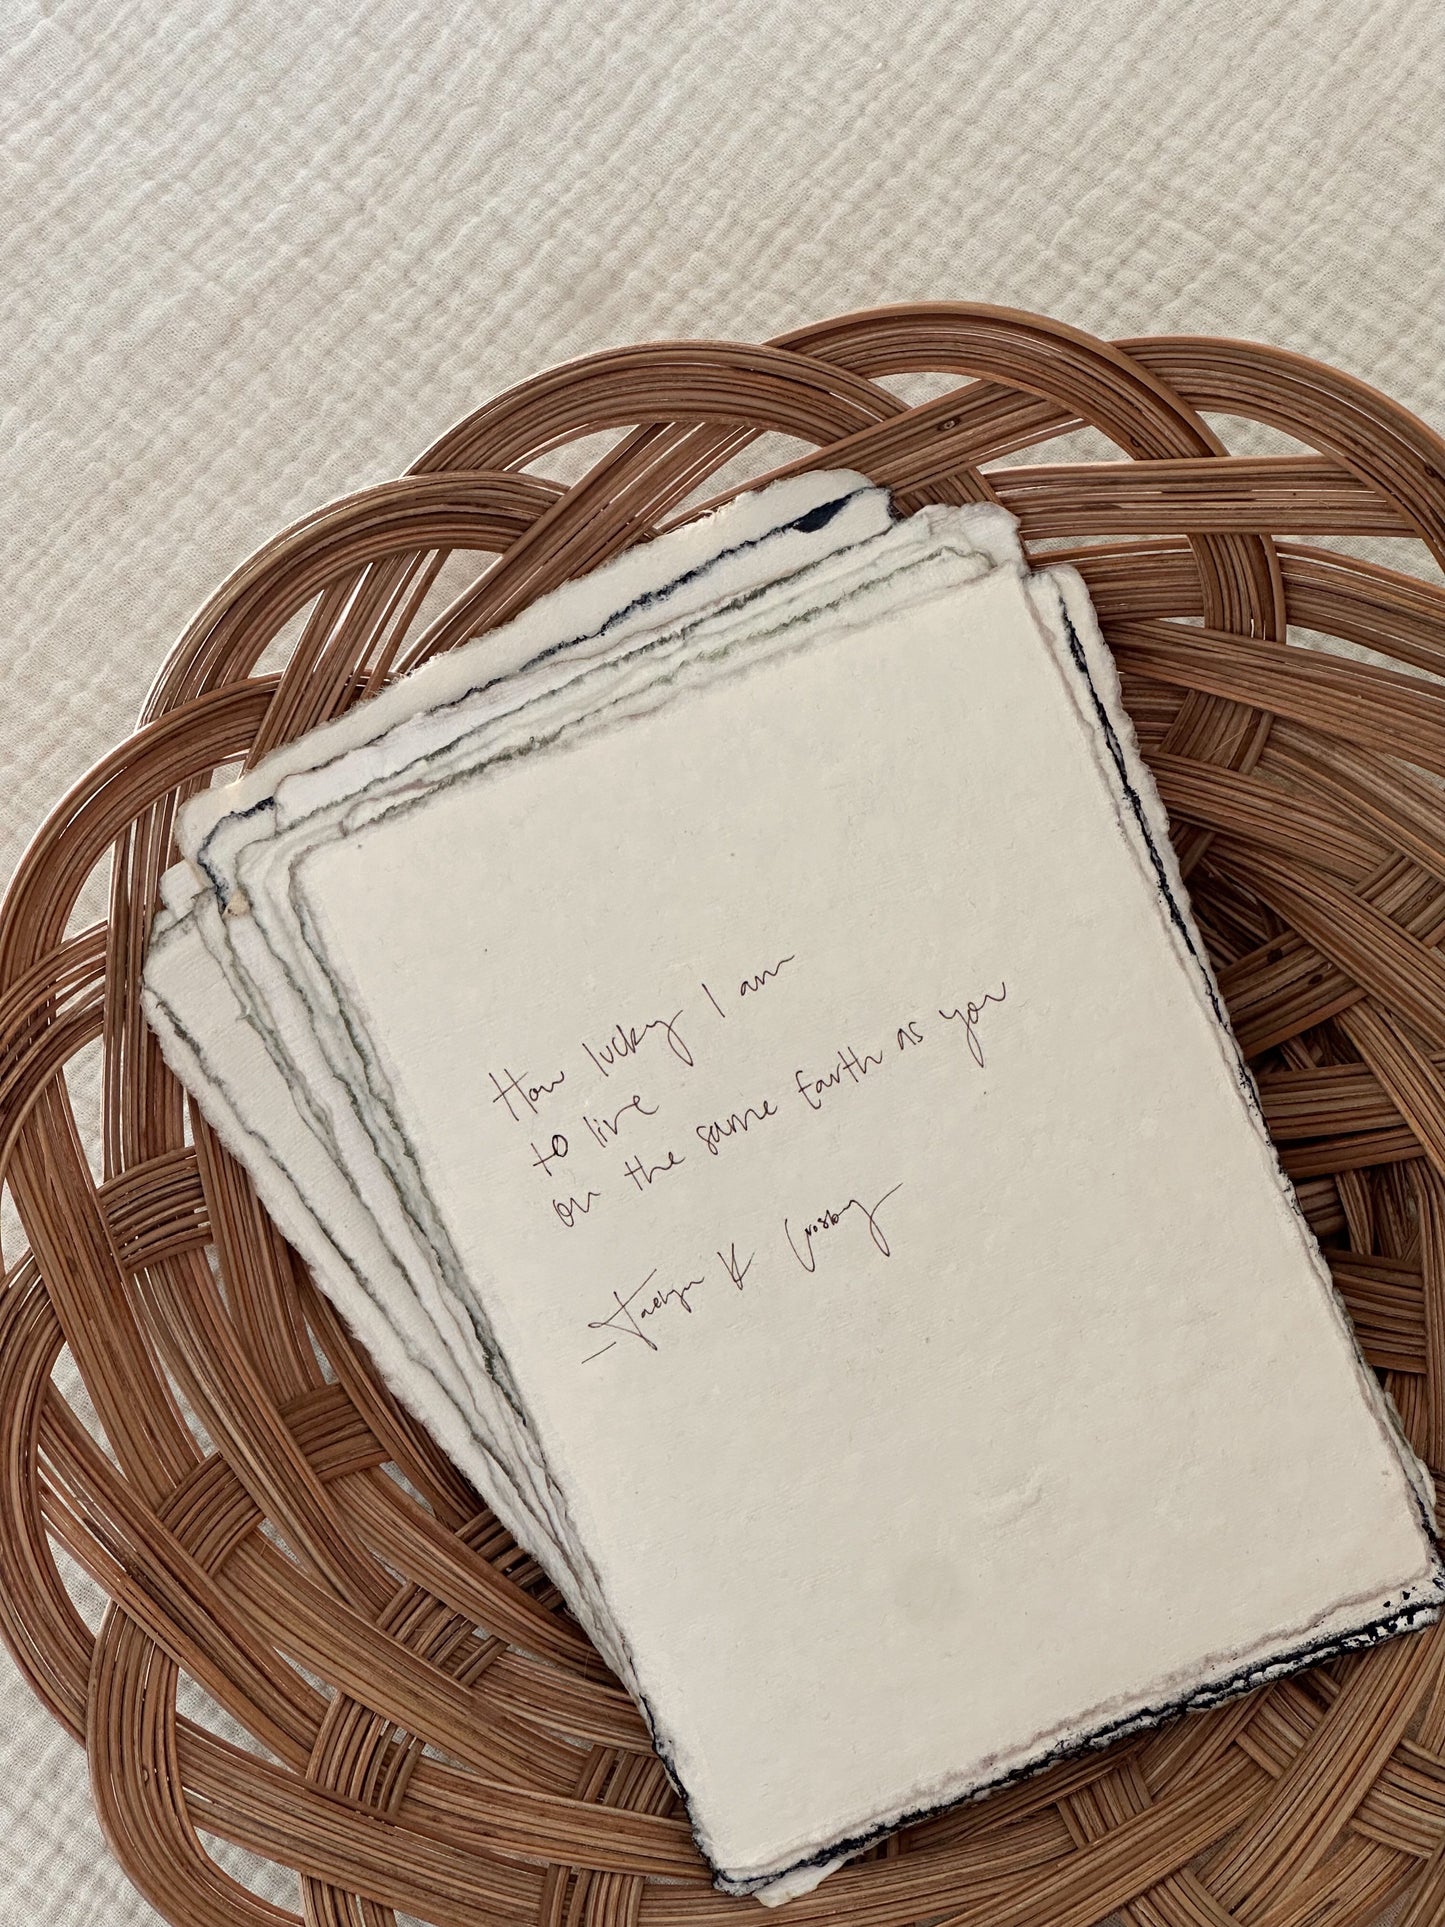 How lucky I am
to live
on the same Earth as you
— Jaclyn K Crosby